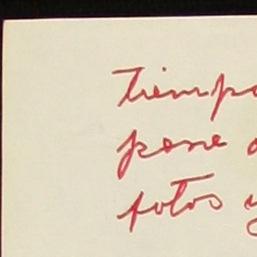 tiempo
pone
fotos y